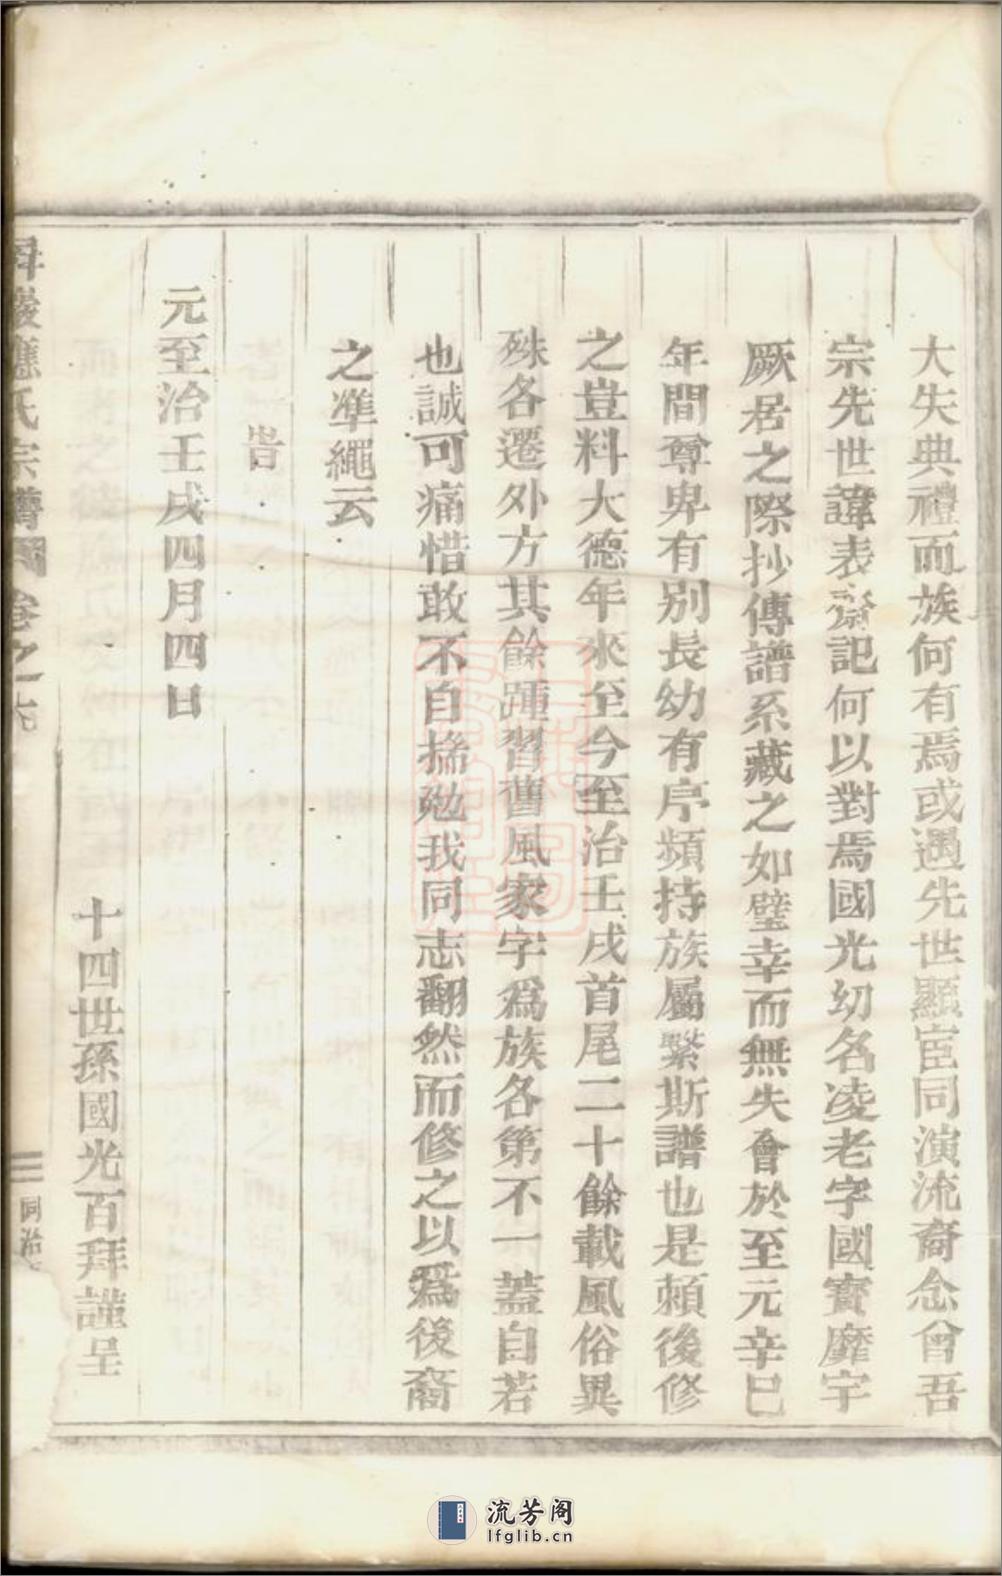 大失典禮而族何有焉或遇先世顯宦同演流裔念曾吾
宗先世諱表記何以對焉國光幼名凌老字國賓靡宇
厥居之際抄傳譜系藏之如璧幸而無失會於至元辛巳
年間尊卑有别長幼有序頻持族屬繄斯譜也是頼後修
之豈料大德年來至今至治壬戌首尾二十餘載風俗異
殊各遷外方其餘踵習舊風家字爲族各第不一蓋自若
也誠可痛惜敢不自揣勉我同志翻然而修之以爲後裔
之準繩云
旹
元至治壬戌四月四日
十四世孫國光百拜謹呈
氏宗譜 卷之六
三
同治
流芳阁
lfglib.cn